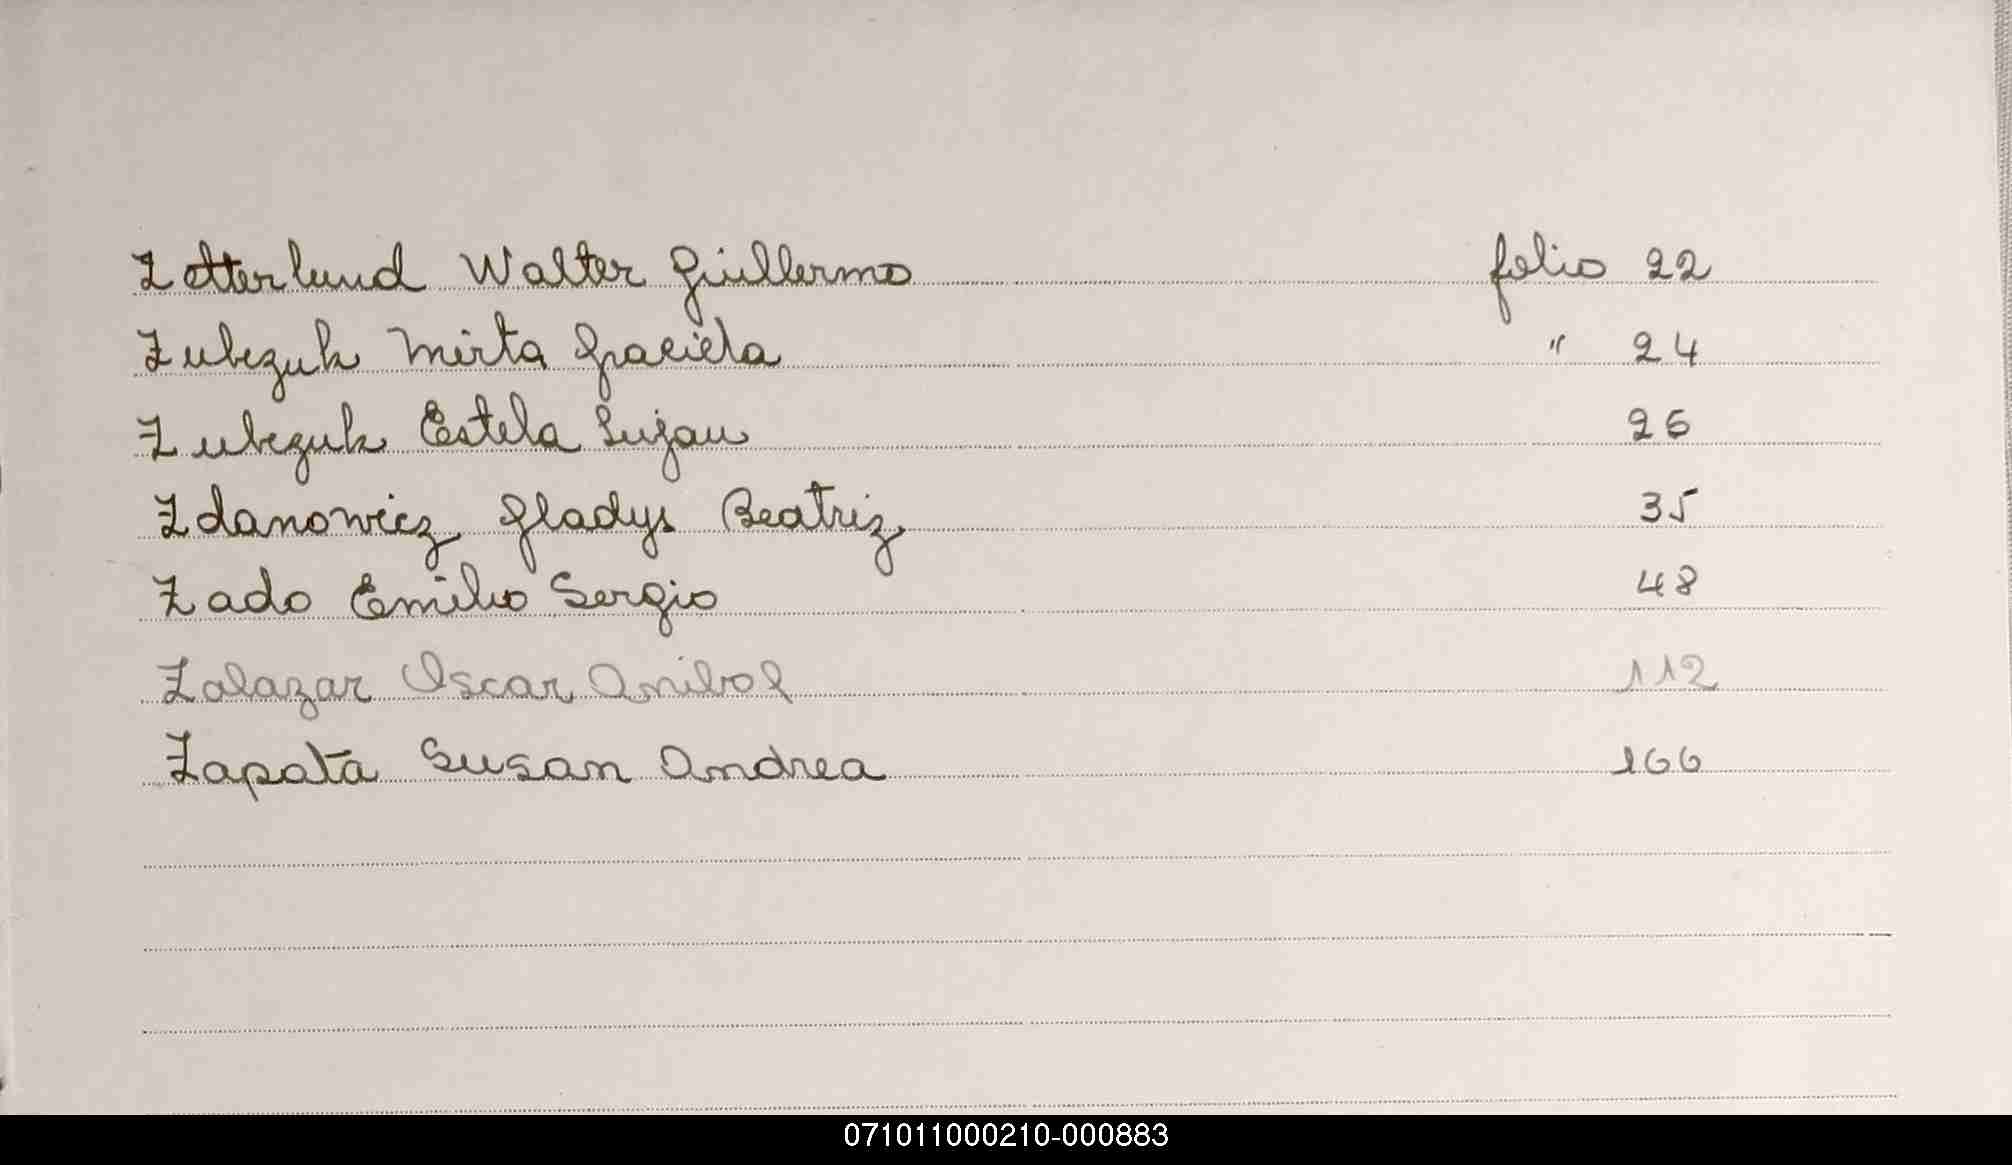 Zetterlund Walter Guillermo folio 22
Zubczuk Mirta Graciela " 24
Zubczuk Estela Lujan 26
Zdanowicz Gladys Beatriz 35
Zado Emilio Sergio 48
Zalazar Oscar Anibal 112
Zapata Susan Andrea 166
071011000210-000883